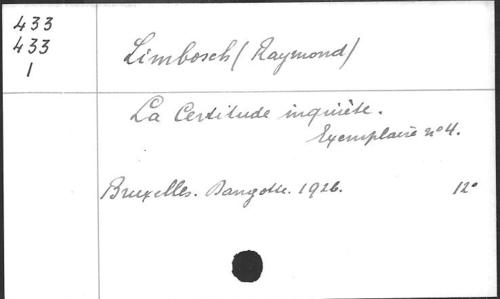 433
433
1
Limbosch (Raymond)
La Certitude inquiète.
Exemplaire n°4.
Bruxelles. Dangotte. 1926. 12°